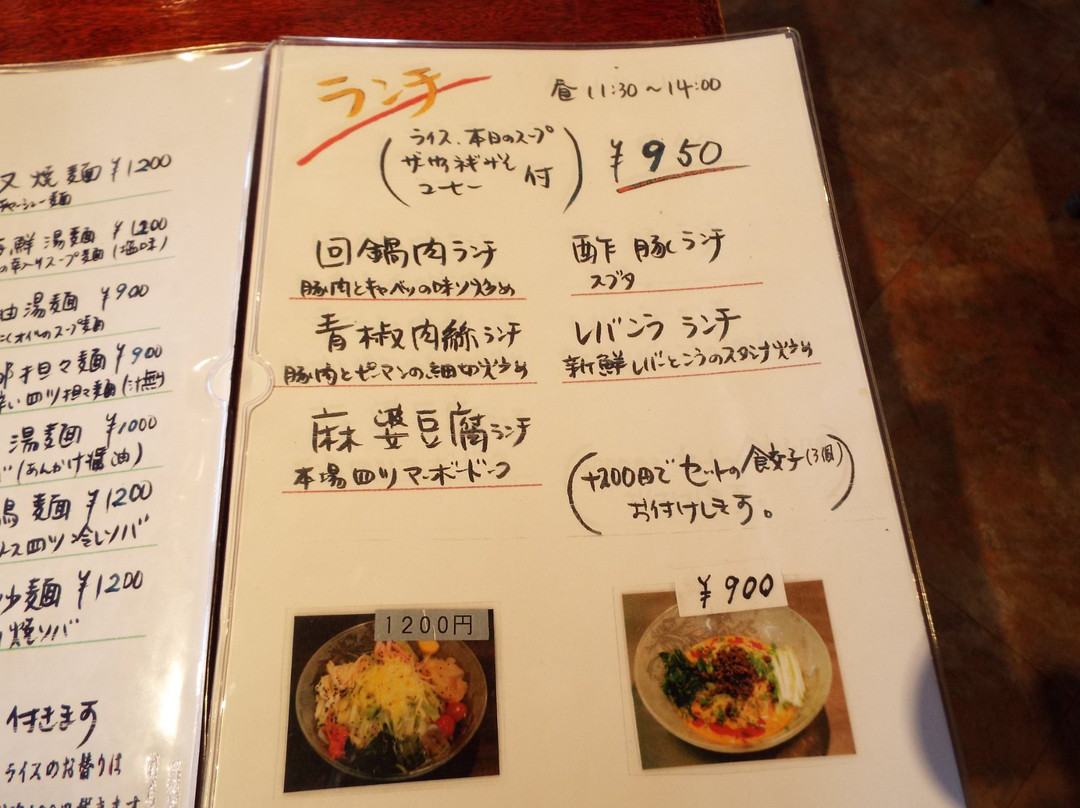 焼麺 ¥1200
チャーシュー麺
鮮湯麺 ¥1200
スープ麺(塩味)
油湯麺 ¥900
のスープ麺
担々麺 ¥900
四川担々麺(汁無)
湯麺 ¥1000
(あんかけ醤油)
麺 ¥1200
冷しソバ
炒麺 ¥1200
焼ソバ
付きます
ライスのお替りは
ランチ
昼 11:30〜14:00
(ライス、本日のスープ
コーヒー 付)
¥950
回鍋肉ランチ
豚肉とキャベツの味ソ炒め
酢豚ランチ
スブタ
青椒肉絲ランチ
豚肉とピーマンの細切炒め
レバニラ ランチ
新鮮レバーとニラのスタミナ炒め
麻婆豆腐ランチ
本場四川マーボードーフ
(+200円でセットの餃子(3個)
お付けします。)
1200円
¥900